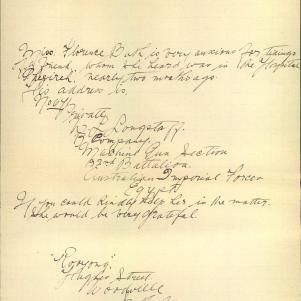 Miss Florence Bath is very anxious for tidings
of a friend, whom she heard was in the Hospital
nearly two months ago.
His address is.
No 641
Private
Longstaff.
Company.
Machine Gun Section
32nd Battalion
Australian Imperial Forces
Egypt
If you could kindly help her in the matter
she would be very grateful
Hughes Street
Woodville